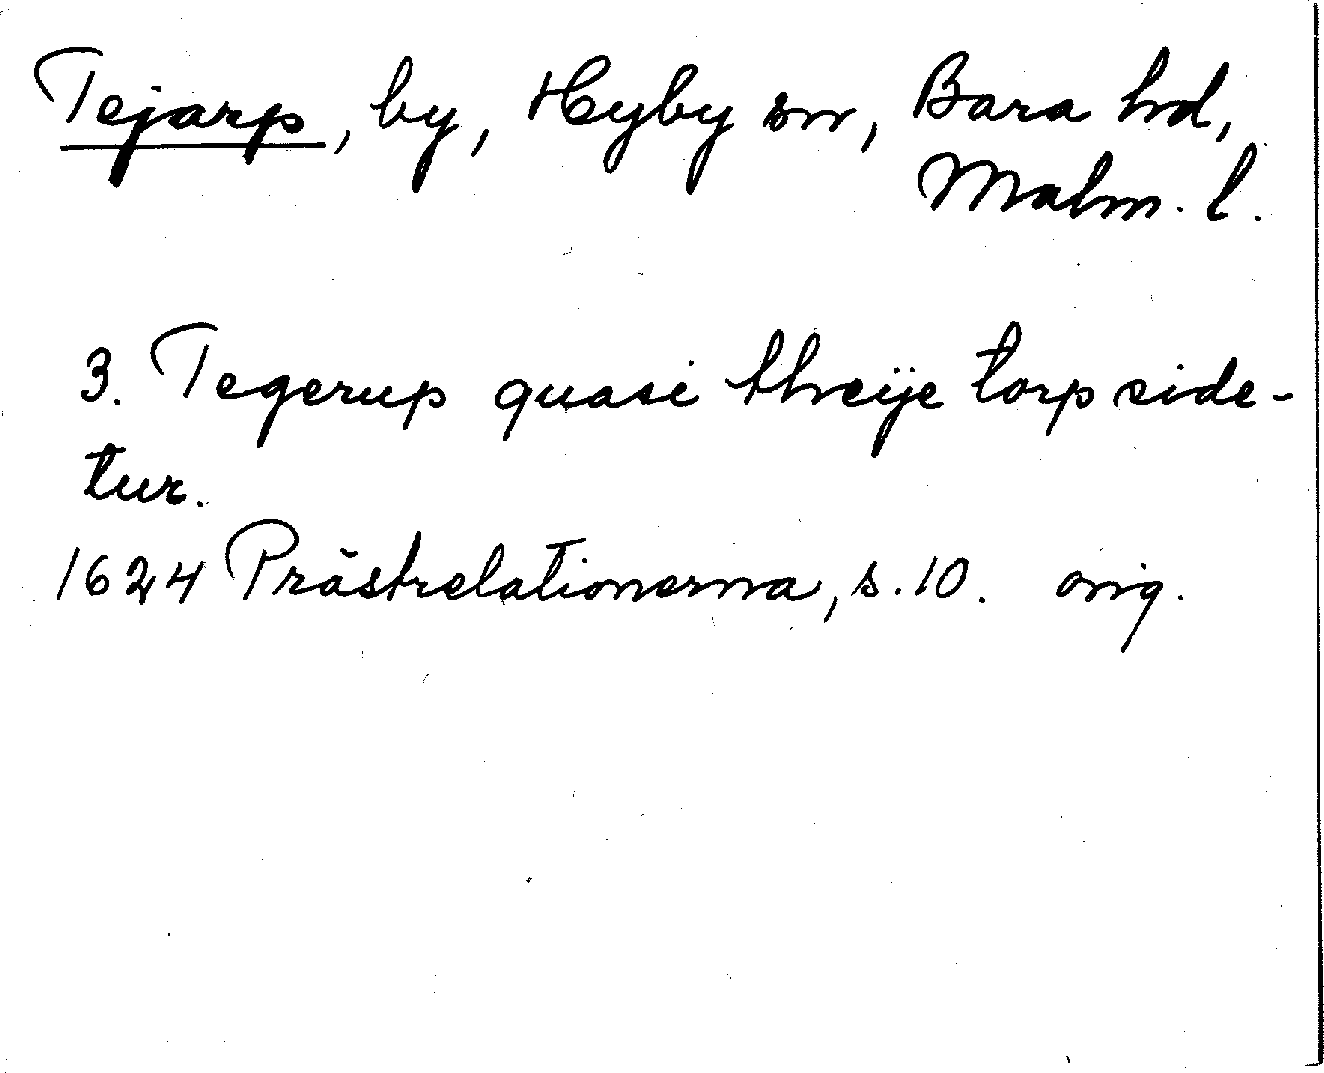 Tejarp, by, Hyby sn, Bara hd,
Malm. l.
3. Tegerup quasi threÿe torp side-
tur.
1624 Prästrelationerna, s. 10. orig.